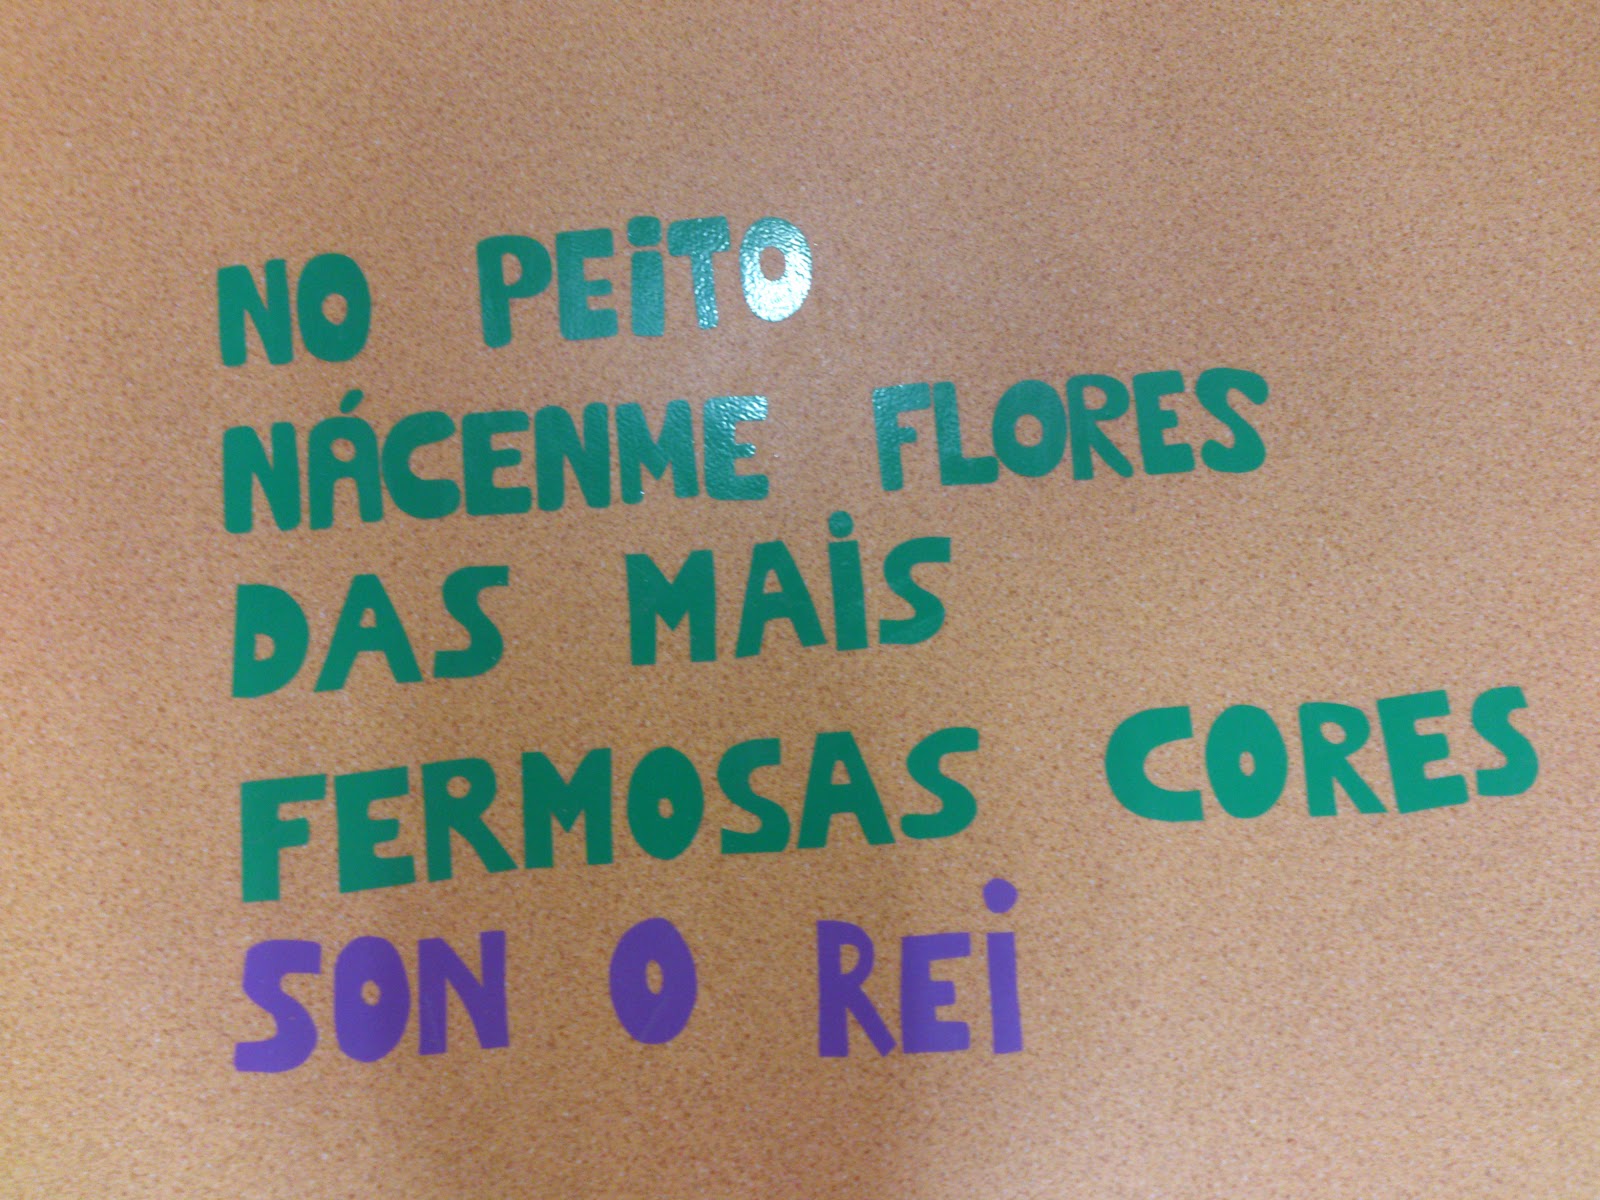 NO PEiTO
NÁCENME FLORES
DAS MAiS
FERMOSAS CORES
SON O REi